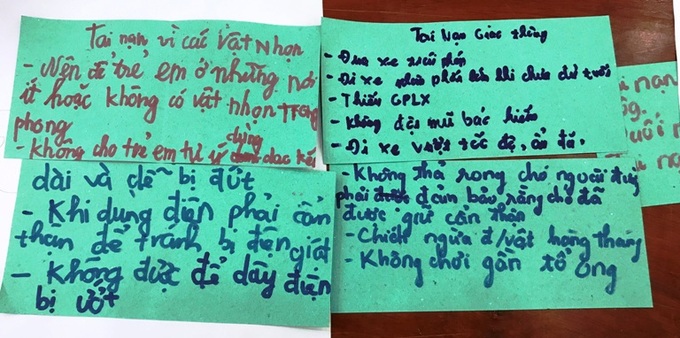 Tai nạn vì các vật nhọn
- Nên để trẻ em ở những nơi
ít hoặc không có vật nhọn trong
phòng
- Không cho trẻ em tự ý dùng dao, kéo
dài và dễ bị đứt
- Khi dụng điện phải cẩn
thận để tránh bị điện giật
- Không được để dây điện
bị ướt
Tai nạn Giao thông
- Đua xe trái phép
- Đi xe phân phối lớn khi chưa đủ tuổi
- Thiếu GPLX
- Không đội mũ bảo hiểm
- Đi xe vượt tốc độ, ẩu đả.
- Không thả rong chó ngoài đường
phải đảm bảo rằng chó đã
được giữ cẩn thận
- Chích ngừa đ/vật hàng tháng
- Không chơi gần tổ ong
nạn